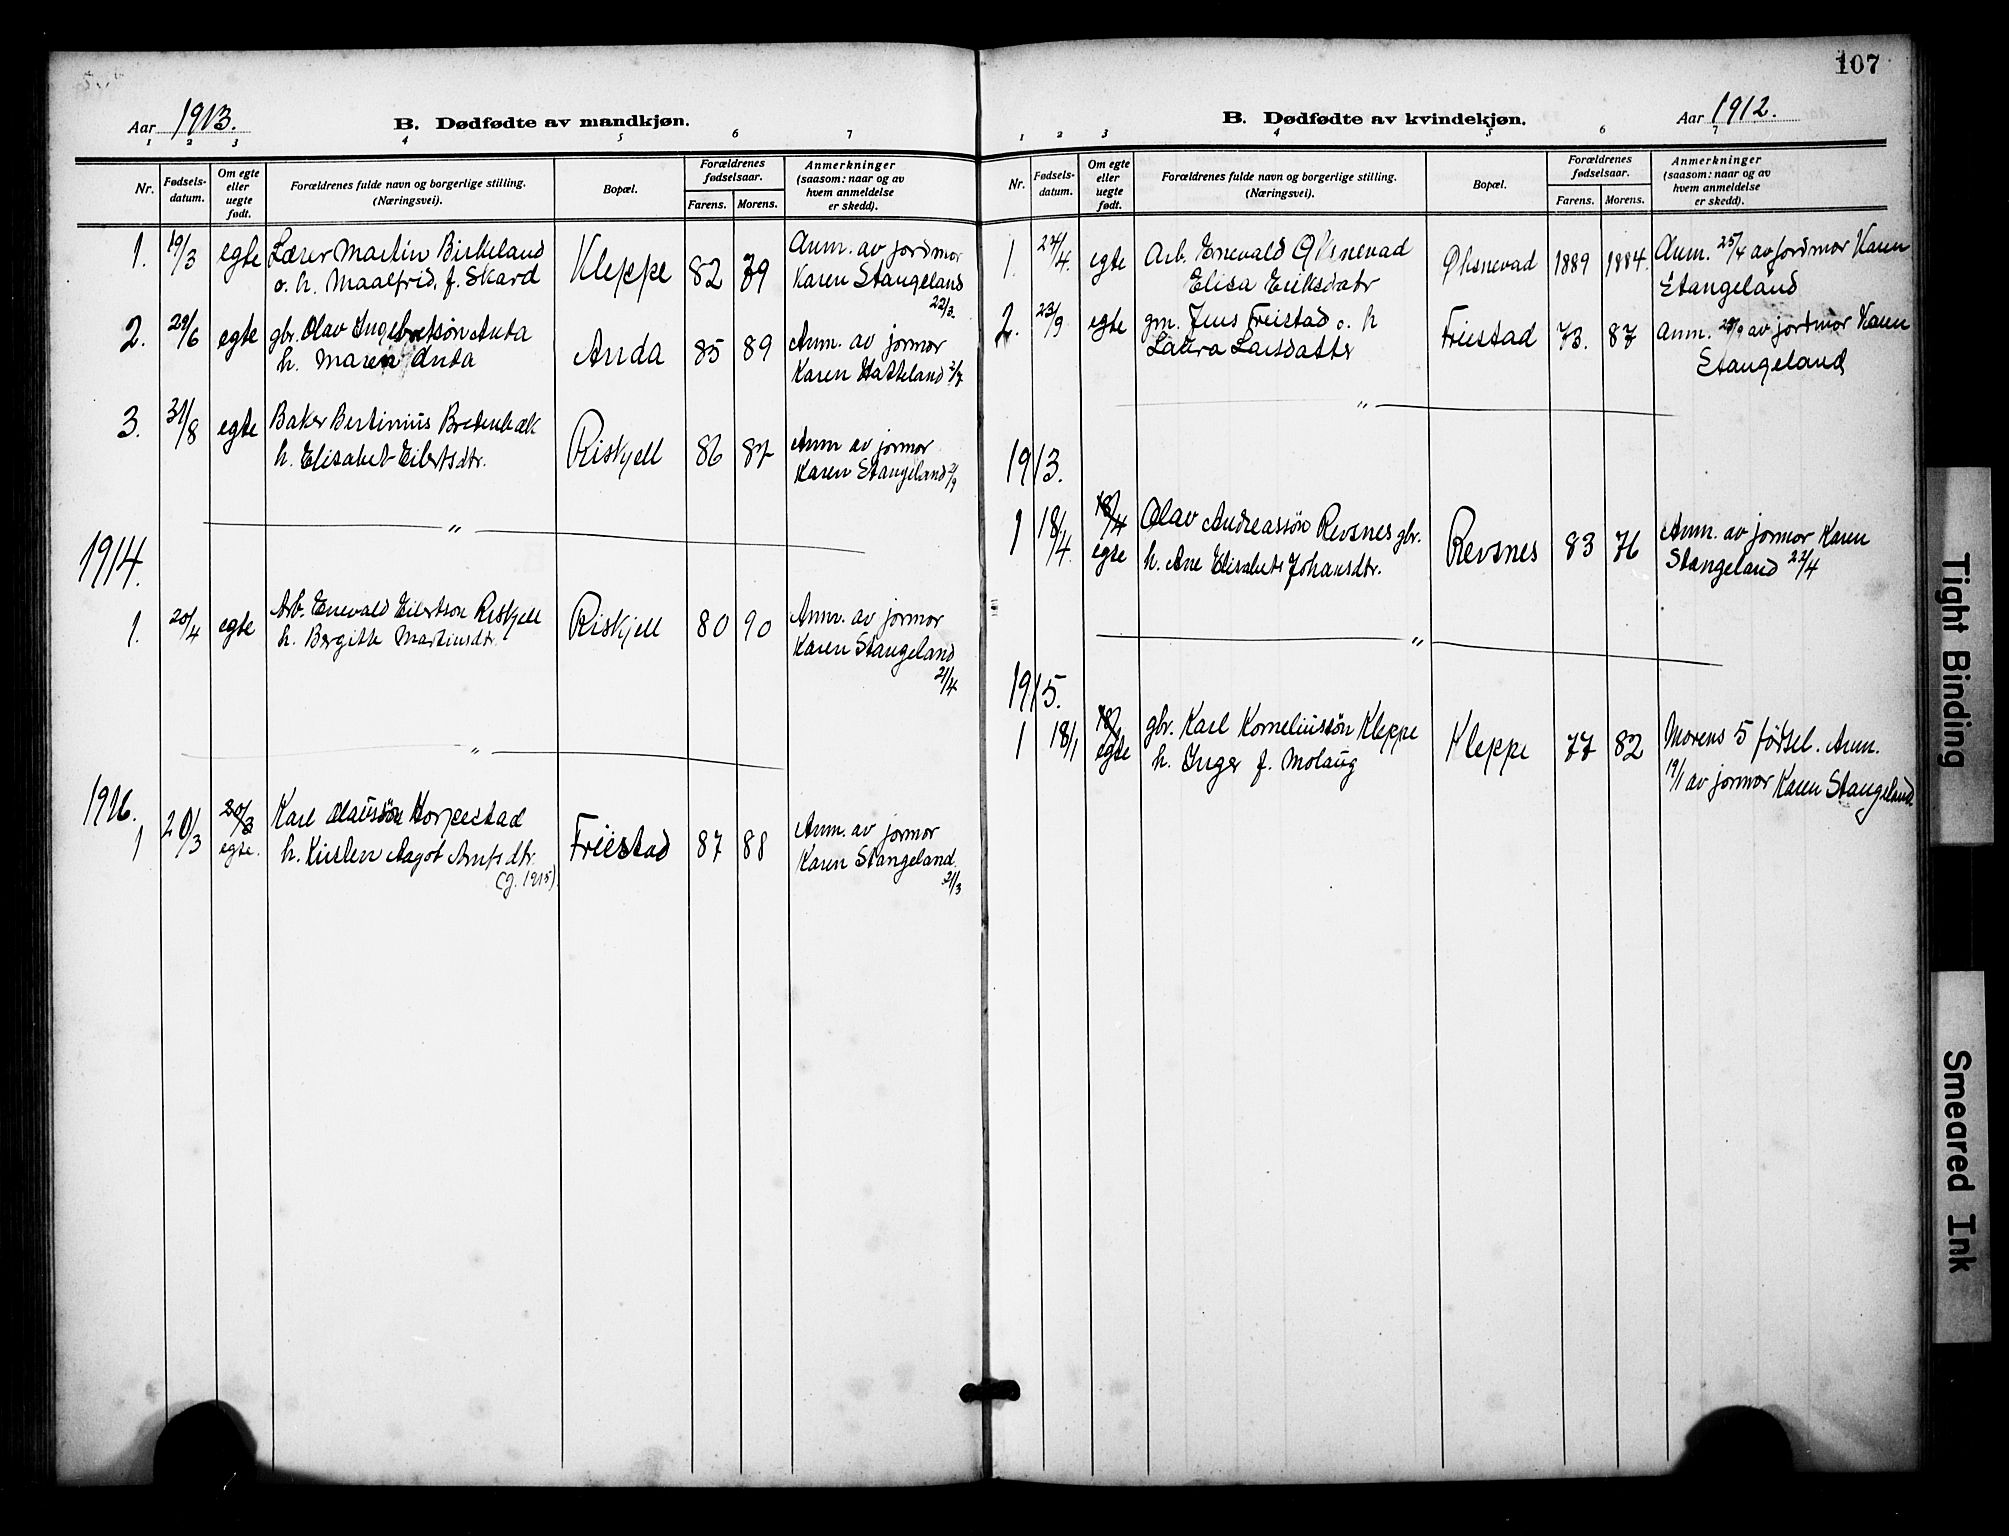 Aar 1913.
B. Dødfødte av mandkjøn.
1 2 3 4 5 6 7
Nr. Fødsels-datum. Om egte eller uegte født. Forældrenes fulde navn og borgerlige stilling. (Næringsvei). Bopæl. Forældrenes fødselsaar. Farens. Morens. Anmerkninger (saasom: naar og av hvem anmeldelse er skedd).
1. 19/3 egte Lærer Martin Birkeland Kleppe 82 79 Anm. av jordmor
o. h. Maalfrid f. Skard Karen Stangeland
22/3.
2. 29/6 egte gbr. Olav Ingebretsøn Anda Anda 85 89 Anm. av jormor
h. Maren Anda Karen Hatteland 2/7
3. 31/8 egte Baker Bertinius Bredenbæk Riskjell 86 87 Anm av jormor
h. Elisabet Eilertsdtr. Karen Stangeland 2/9
"
1914.
1. 20/4 egte Arb. Enevald Eilertson Riskjell Riskjell 80 90 Anm. av jormor
h. Bergitte Martinsdtr. Karen Stangeland
21/4
"
1916.
1 20/3 20/3 egte. Karl Olavsøn Horpestad Friestad 87 88 Anm. av jormor
h. Kirsten Aagot Arntsdtr. Karen Stangeland.
(g. 1915). 21/3
107
B. Dødfødte av kvindekjøn.
Aar 1912.
1 2 3 4 5 6 7
Nr. Fødsels-datum. Om egte eller uegte født. Forældrenes fulde navn og borgerlige stilling. (Næringsvei). Bopæl. Forældrenes fødselsaar. Farens. Morens. Anmerkninger (saasom: naar og av hvem anmeldelse er skedd).
1. 24/4. egte Arb. Enevald Øksnevad Øksnevad 1889 1884. Anm. 25/4 av jordmor Karen
Elisa Eriksdatr Stangeland
2. 23/9 egte gm. Jens Freistad o. h Friestad 73. 87 Anm. av jordmor Karen
Laura Larsdatter Stangeland
"
1913.
1 18/4. 18/4 egte Olav Andreassøn Revsnes gbr. Revsnes 83 76 Anm. av jormor Karen
h. Ane Elisabets Johansdtr. Stangeland 22/4
"
1915.
1 18/1 18/1 egte gbr. Karl Korneliussøn Kleppe Kleppe 77 82 Morens 5 fødsel. Anm.
h. Inger f. Molaug 19/1 av jormor Karen Stangeland.
Tight Binding
Smeared Ink